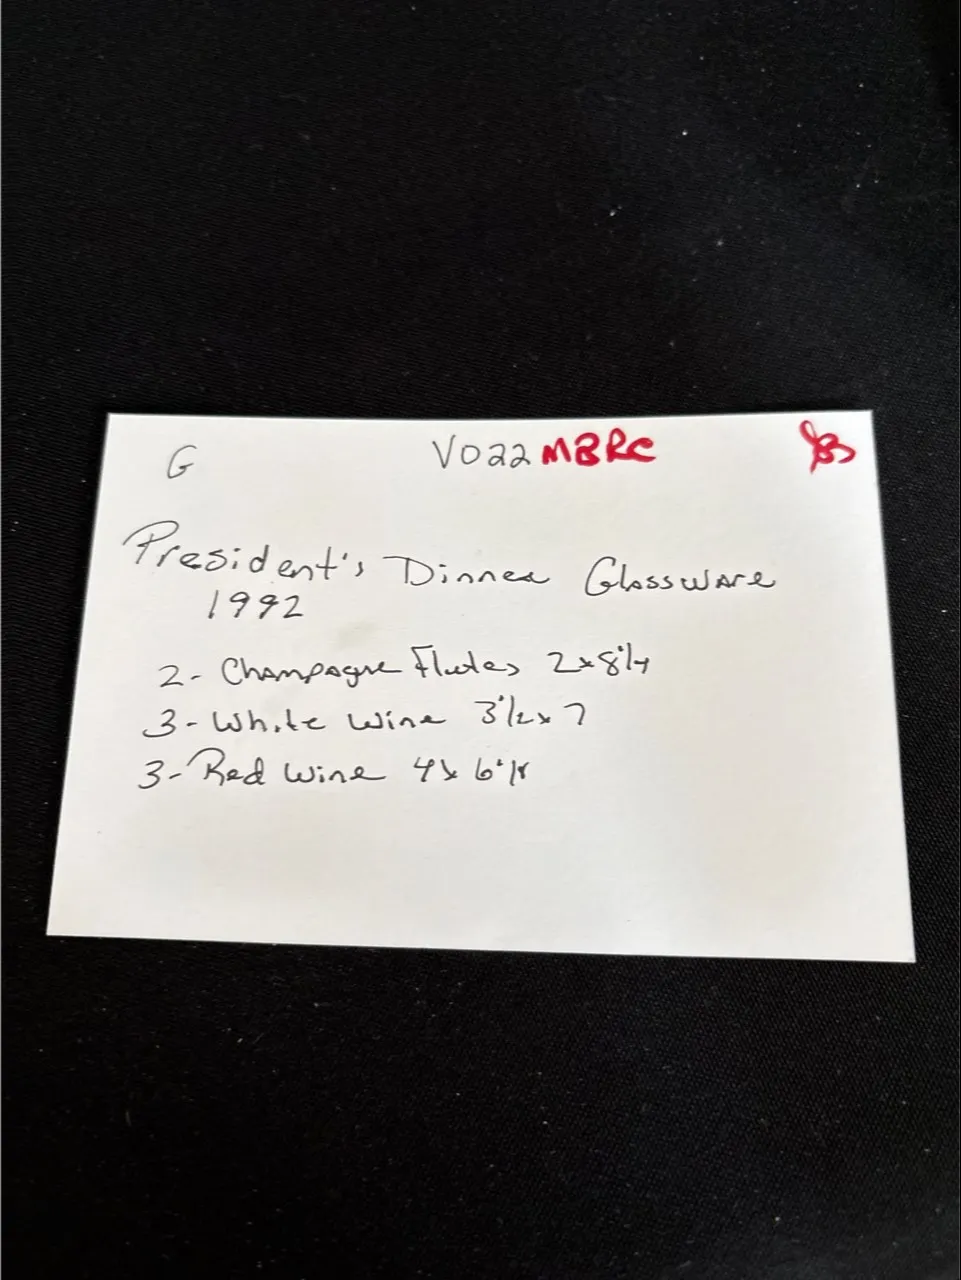 G VO22 MBRC
President's Dinner Glassware
1992
2- Champagne Flutes 2x8 1/4
3- White wine 3 1/2 x 7
3- Red wine 4x